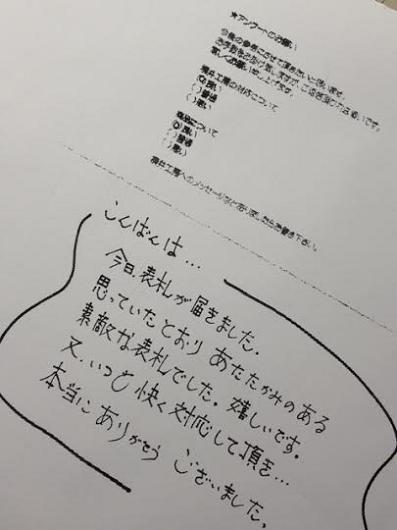 ★アンケートのお願い
今後の参考にさせて頂きたいと思います。
お手数をお掛け致しますが、ご協力頂ければ幸いです。
宜しくお願い申し上げます。
の対応について
良い
普通
悪い
商品について
良い
普通
悪い
工房へのメッセージなどありましたらお書き下さい。
こんばんは…
今日、表札が届きました。
思っていたとおり あたたかみのある
素敵な表札でした。嬉しいです。
又、いつも 快く対応して頂き…
本当に ありがとう ございました。